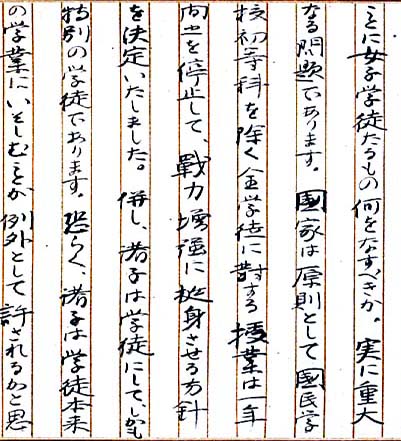 ことに女子学徒たるもの何をなすべきか。実に重大
なる問題であります。國家は原則として國民学
校初等科を除く全学徒に對する授業は一年
間之を停止して、戰力増強に挺身させる方針
を決定いたしました。併し、諸子は学徒にして、しかも
特別の学徒であります。恐らく、諸子は学徒本来
の学業にいそしむことが例外として許されるかと思